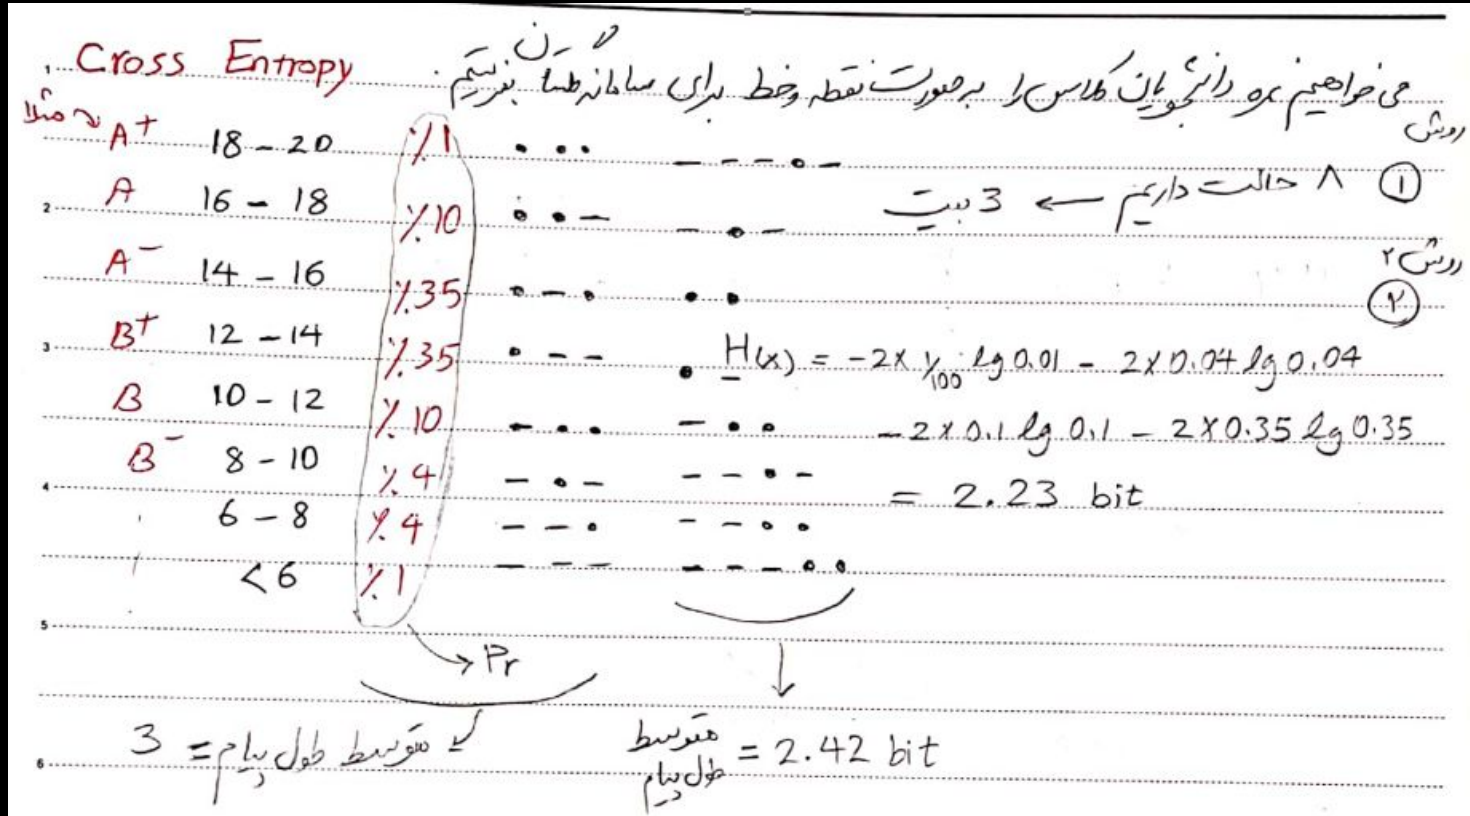 Cross Entropy
می خواهیم نمره دانشجویان کلاس را به صورت نقطه و خط برای سامانه گلستان بفرستیم.
مثلا
روش
① ۸ حالت داریم ← 3 بیت
روش ۲
②
A+ 18 - 20 %1 • • • - - - • -
A 16 - 18 %10 • • - - • -
A- 14 - 16 %35 • - • • •
B+ 12 - 14 %35 • - - • -
B 10 - 12 %10 - • • - • •
B- 8 - 10 %4 - • - - - • -
6 - 8 %4 - - • - - • •
<6 %1 - - - - - - • •
H(x) = -2x 1/100 lg 0.01 - 2x0.04 lg 0.04
-2x0.1 lg 0.1 - 2x0.35 lg 0.35
= 2.23 bit
→ Pr
متوسط طول پیام = 3
متوسط طول پیام = 2.42 bit
1
2
3
4
5
6